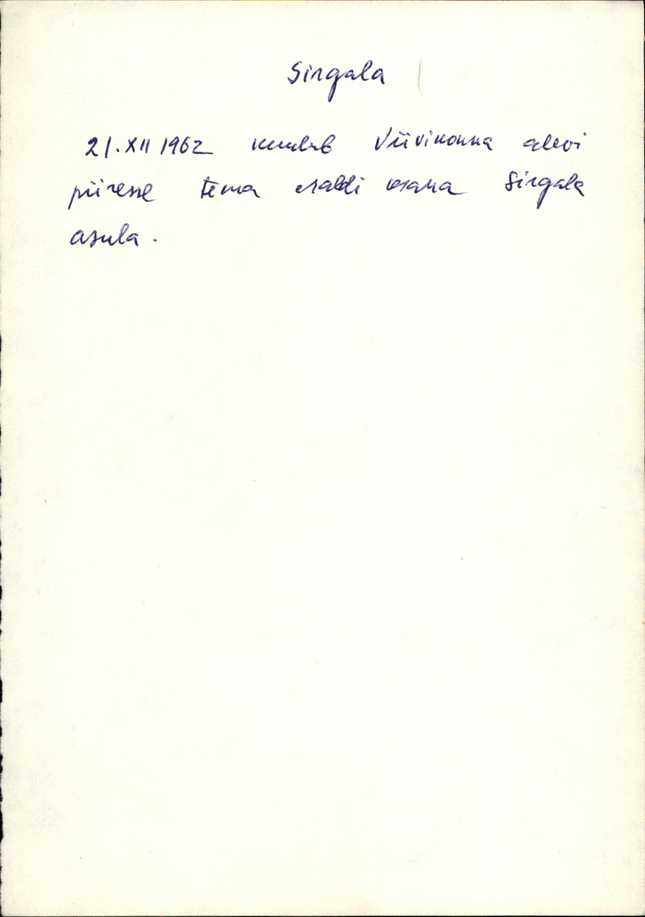 Sirgala
21.XII 1962 kuulub Viivikonna alevi
piiresse tema eraldi osana Sirgala
asula.